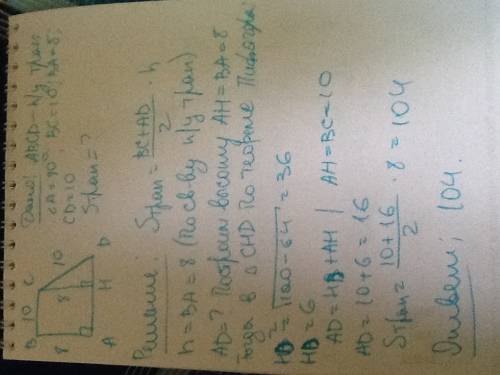 B 10 C
8 8 10
A H D
Дано: ABCD - п/у трап
∠A = 90° BC = 10; BA = 8;
CD = 10
Sтрап = ?
Решение: Sтрап = BC + AD / 2 · h
h = BA = 8 (по св-ву п/у трап)
AD = ? Построим высоту AH = BA = 8
тогда в △ CHD по теореме Пифагора:
HD² = √100 - 64 = 36
HD = 6
AD = HD + AH | AH = BC = 10
AD = 10 + 6 = 16
Sтрап = 10 + 16 / 2 · 8 = 104
Ответ; 104.